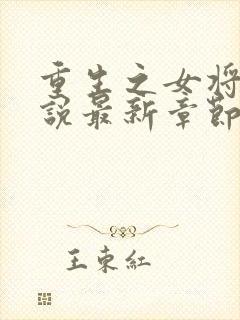 重生之女将
說最新章節
王東紅